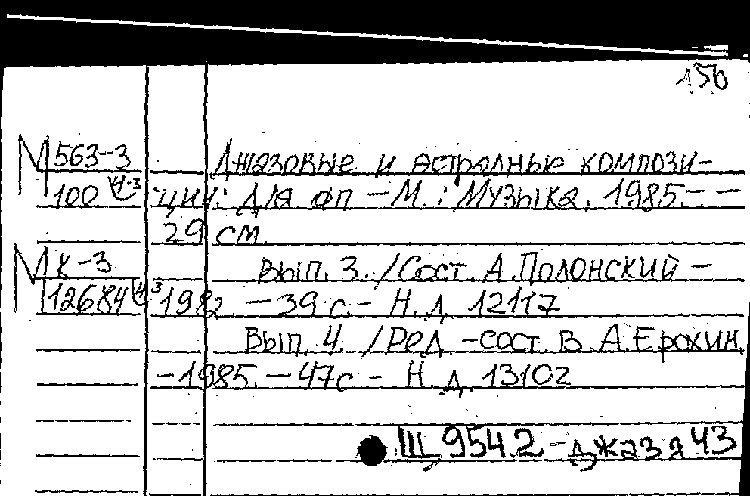 156
М 563-3 Джазовые и эстрадные компози-
100 ции: Для фп – М.: Музыка, 1985. –
29 см.
М К-3 Вып. 3. / Сост. А. Полонский –
12684 1982 – 39 с. – Н. д. 12117
Вып. 4. / Ред.-сост. В. А. Ерохин.
– 1985. – 47 с – Н. д. 13102
Щ 954.2 – джаз я 43